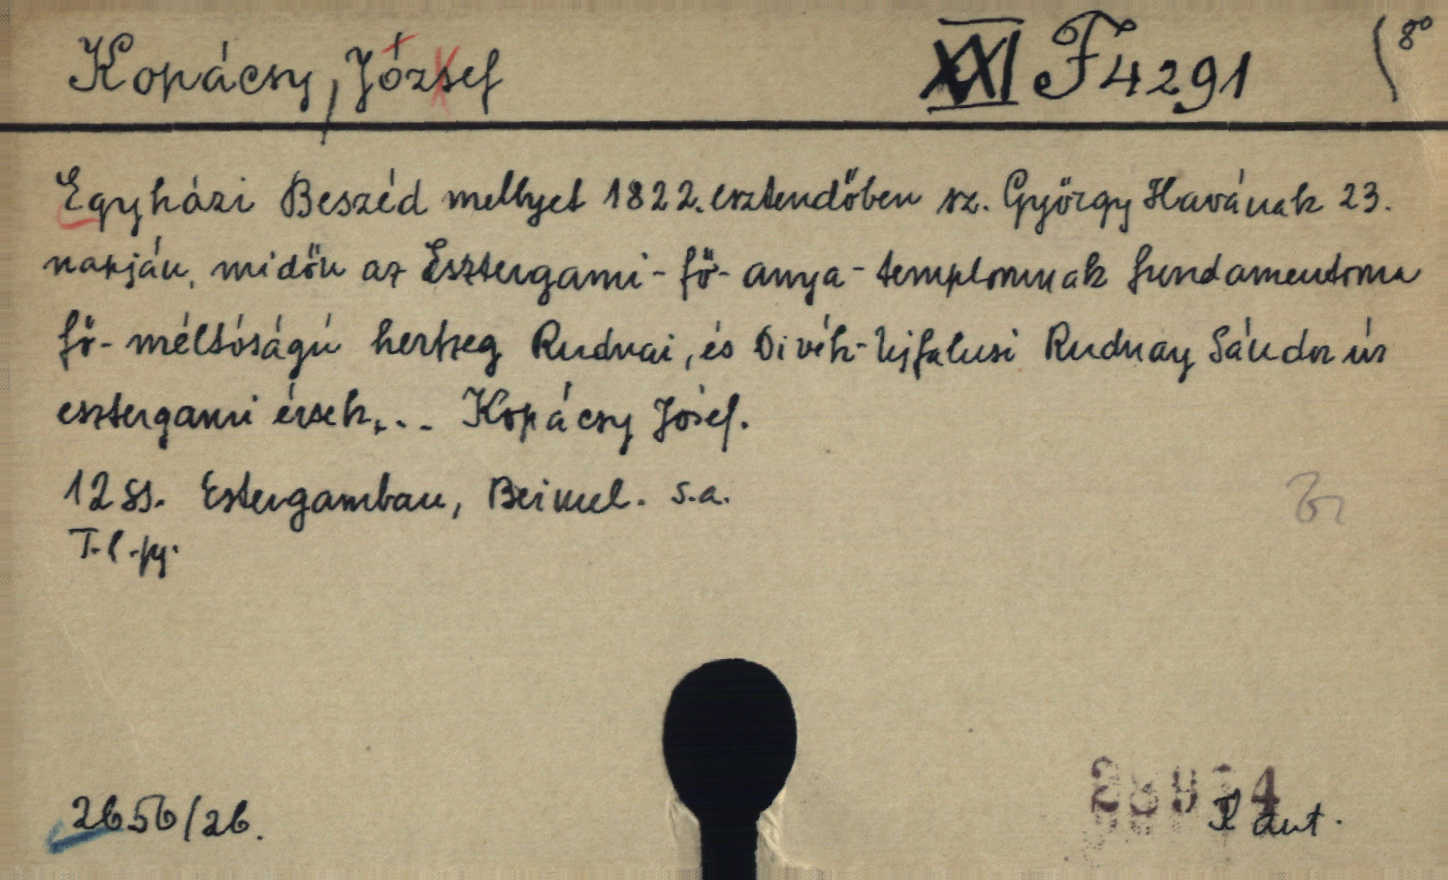 Kopácsy, József XXI F 4291 8°
Egyházi Beszéd mellyet 1822. esztendőben sz. György Havának 23.
napján, midőn az Esztergami-fő-anya-templomnak fundamentoma
fő-méltóságú hertzeg Rudnai, és Divék-Ujfalusi Rudnay Sándor úr
esztergami érsek,... Kopácsy Jósef.
12 ss. Estergamban, Beimel. s.a.
T.l.py.
2656/26.
aut.